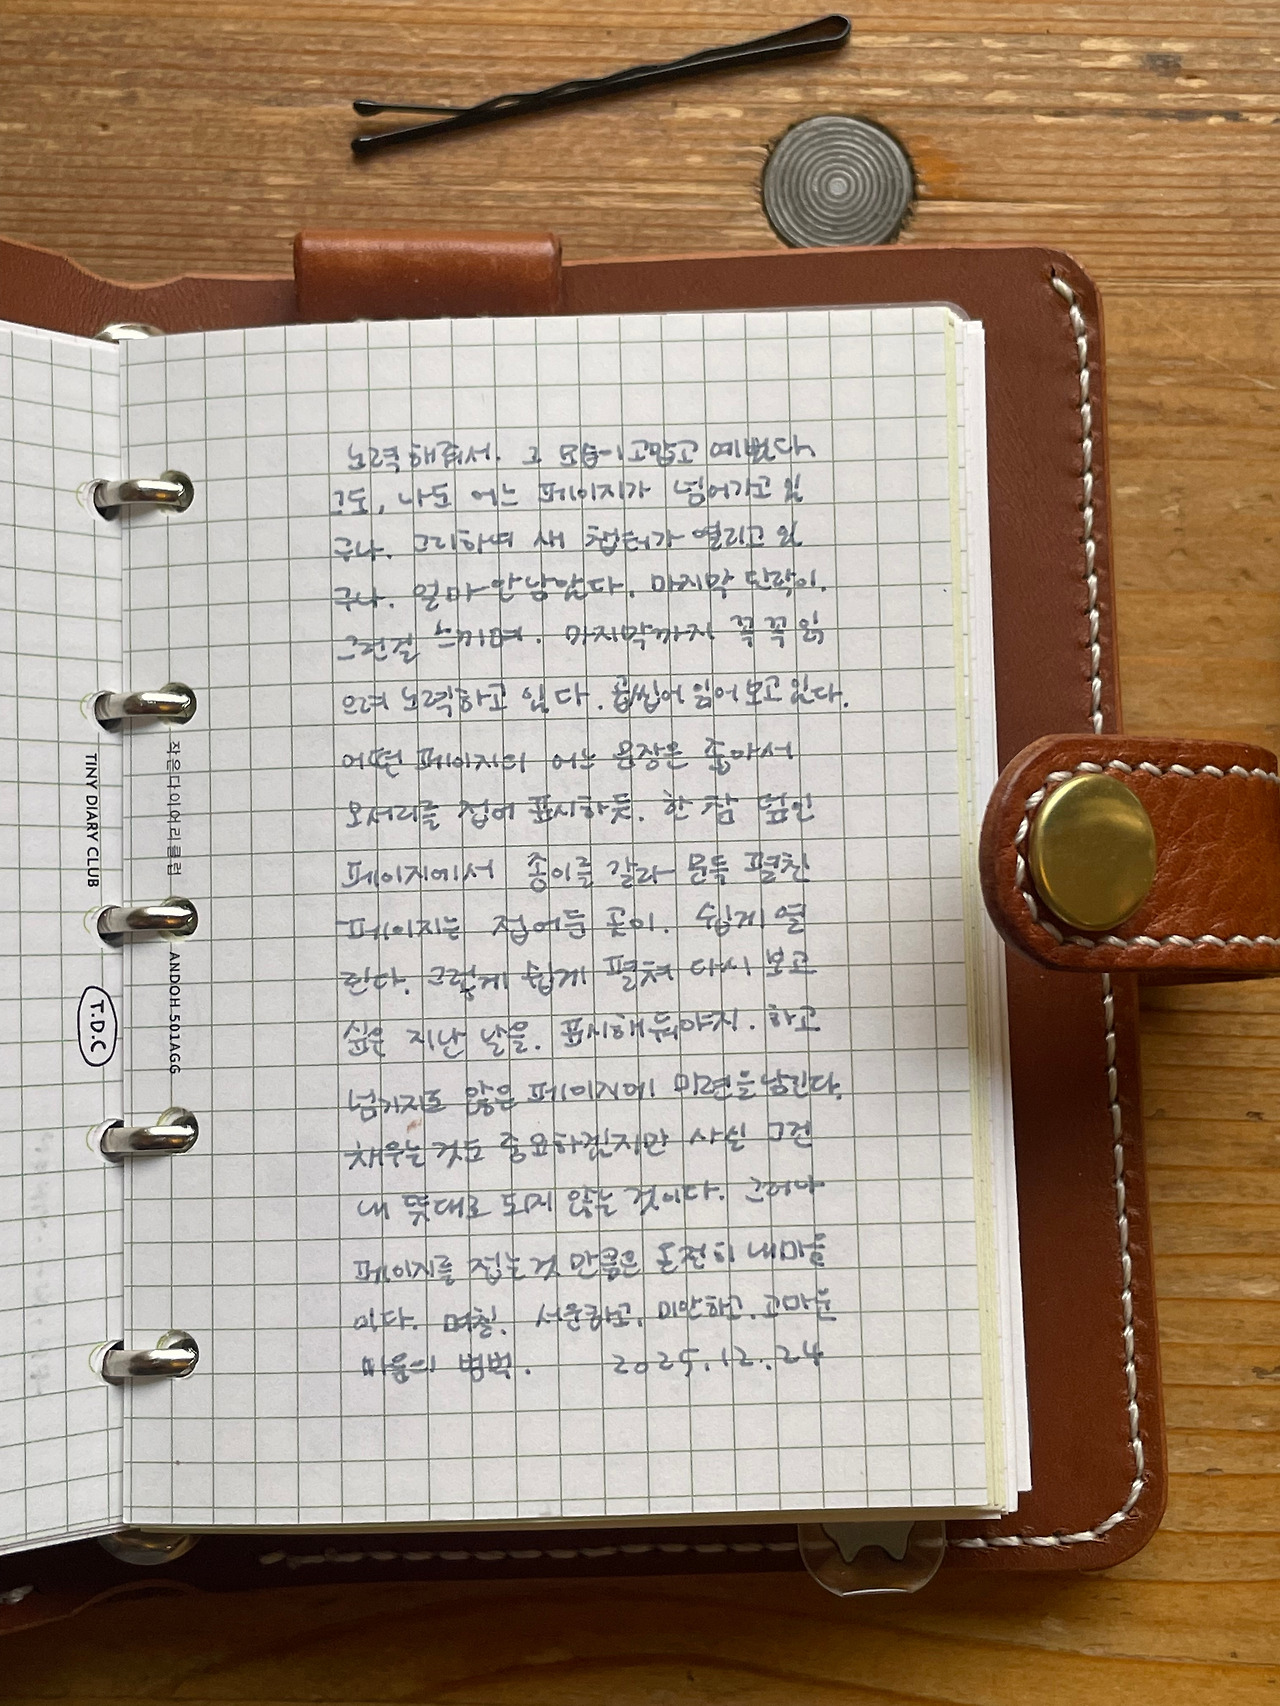 노력해줘서. 그 모습이 고맙고 예뻤다
너도, 나도 어느 페이지가 넘어가고 있
구나. 그리하여 새 챕터가 열리고 있
구나. 얼마 안 남았다. 마지막 단락이.
그런걸 느끼며. 마지막까지 꼭꼭 읽
으려 노력하고 있다. 곱씹어 읽어보고 있다.
어떤 페이지의 어느 문장은 좋아서
모서리를 접어 표시하듯. 한참 덮인
페이지에서 종이를 갈라 문득 펼친
페이지는 접어둔 곳이. 쉽게 열
린다. 그렇게 쉽게 펼쳐 다시 보고
싶은 지난 날을. 표시해둬야지. 하고
넘기지도 않은 페이지에 미련을 남긴다.
채우는 것도 중요하겠지만 사실 그건
내 뜻대로 되지 않는 것이다. 그러나
페이지를 접는 것 만큼은 온전히 내마음
이다. 며칠. 서운하고, 미안하고. 고마운
마음의 범벅. 2025.12.24
작은다이어리클럽
TINY DIARY CLUB
ANDOH 501AGG
T.D.C